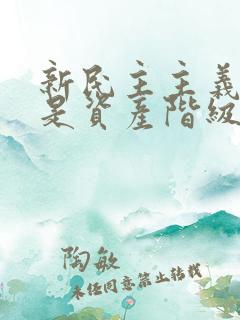 新民主主義
是資產階級
陶敏
未经同意禁止转载